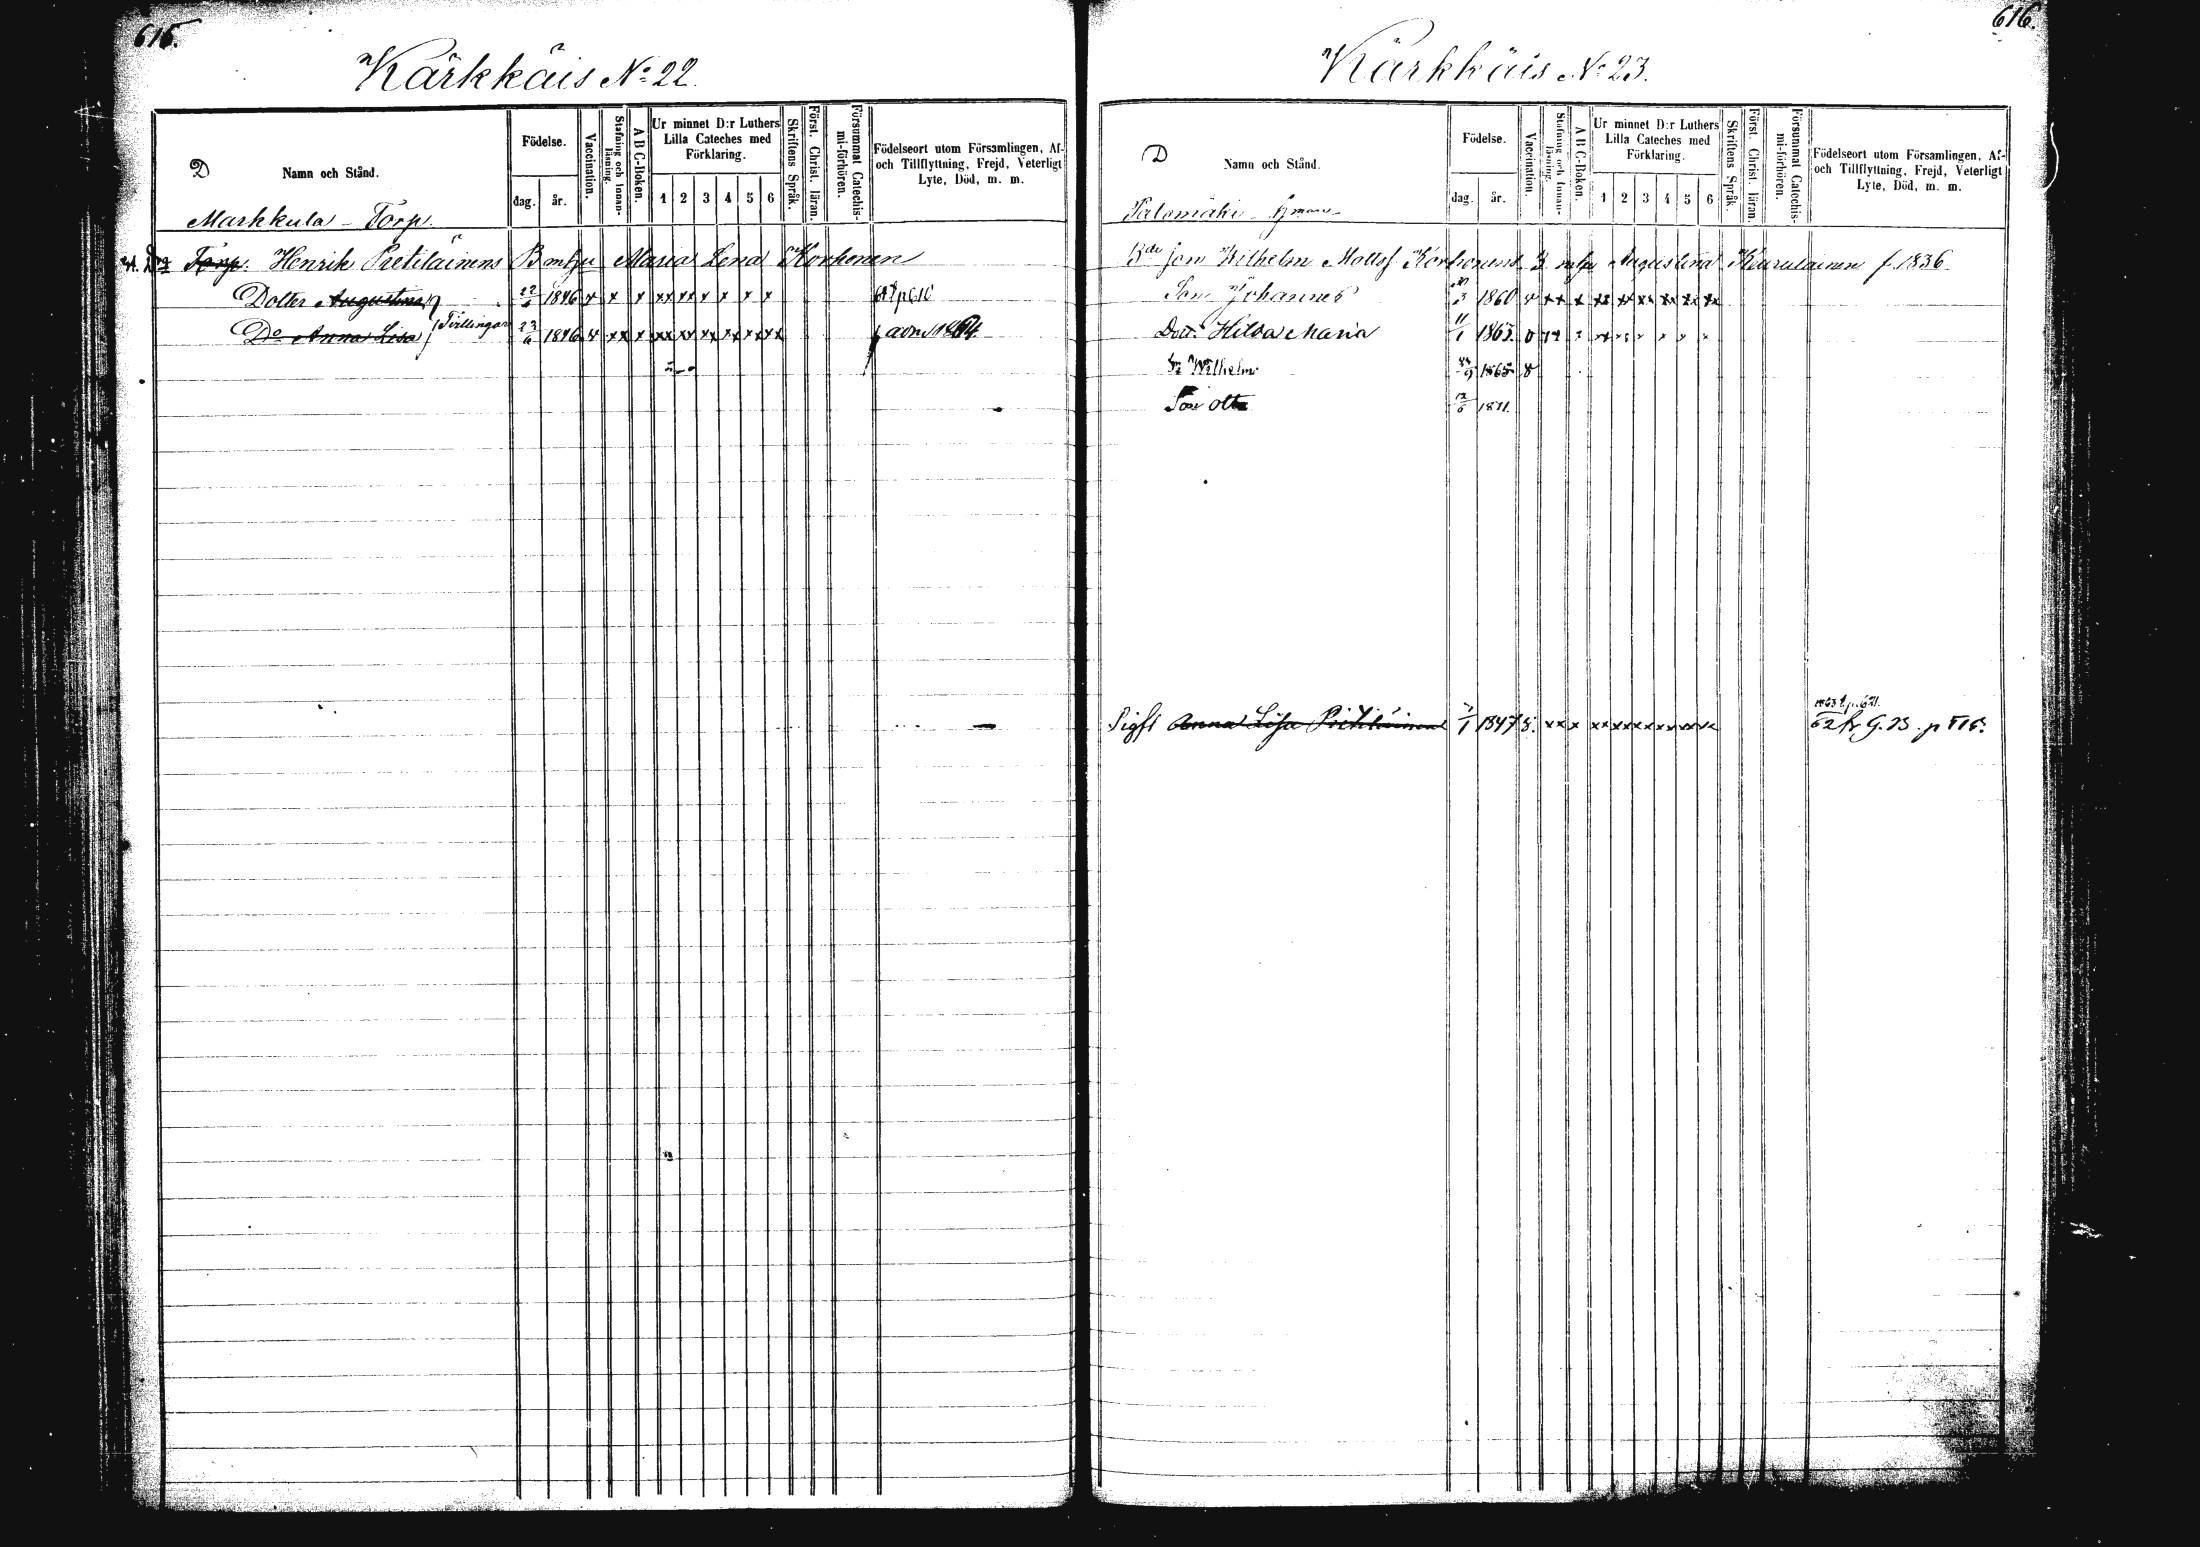 615.
Kärkkäis No 22.
D Namn och Stånd.
Födelse.
dag. år.
Vaccination.
Stafning och Innan-
läsning.
A B C-Boken.
Ur minnet D:r Luthers
Lilla Cateches med
Förklaring.
1 2 3 4 5 6
Skriftens Språk.
Först. Christ. läran.
Försummat Catechis-
mi-förhören.
Födelseort utom Församlingen, Af-
och Tillflyttning, Frejd, Veterligt
Lyte, Död, m. m.
Markkula - Torp.
Torp. Henrik Pietiläinens B m hu Maria Lena Korhonen
Dotter Augustina 1846 x x x xx xx x x x x
Do Anna Lisa Tvillingar 23/6 1846 xx x xx xx xx x xx xx
616.
Kärkkäis No 23.
D Namn och Stånd.
Födelse.
dag. år.
Vaccination.
Stafning och Innan-
läsning.
A B C-Boken.
Ur minnet D:r Luthers
Lilla Cateches med
Förklaring.
1 2 3 4 5 6
Skriftens Språk.
Först. Christ. läran.
Försummat Catechis-
mi-förhören.
Födelseort utom Församlingen, Af-
och Tillflyttning, Frejd, Veterligt
Lyte, Död, m. m.
Palomäki
Bde son Wilhelm Mattsf Korhonens B m hu Augustina Kiurulainen f. 1836
Son Johannes 1860 v xx x xx xx xx xx xx xx
Dott. Hilda Maria 11/1 1863. v
Wilhelm 1865 v
Son Otto 1871.
Anna Lisa Pietiläinen 1847 v. xx x xx xx xx xx xx xx